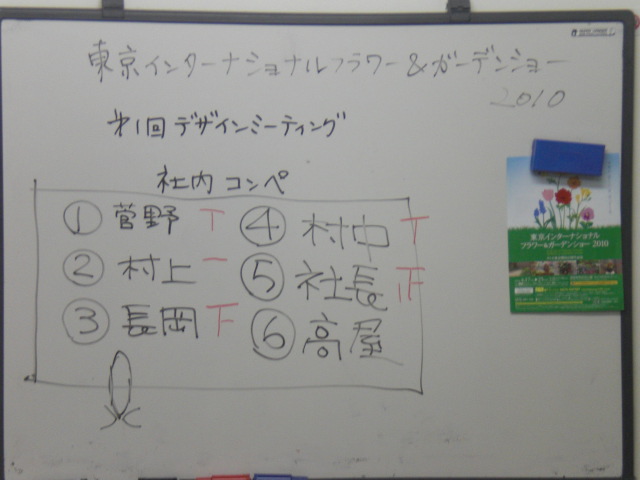 東京インターナショナルフラワー&ガーデンショー
2010
第1回 デザインミーティング
社内 コンペ
① 菅野 T ④ 村中 T
② 村上 一 ⑤ 社長 正
③ 長岡 下 ⑥ 高屋
東京インターナショナル
フラワー&ガーデンショー 2010